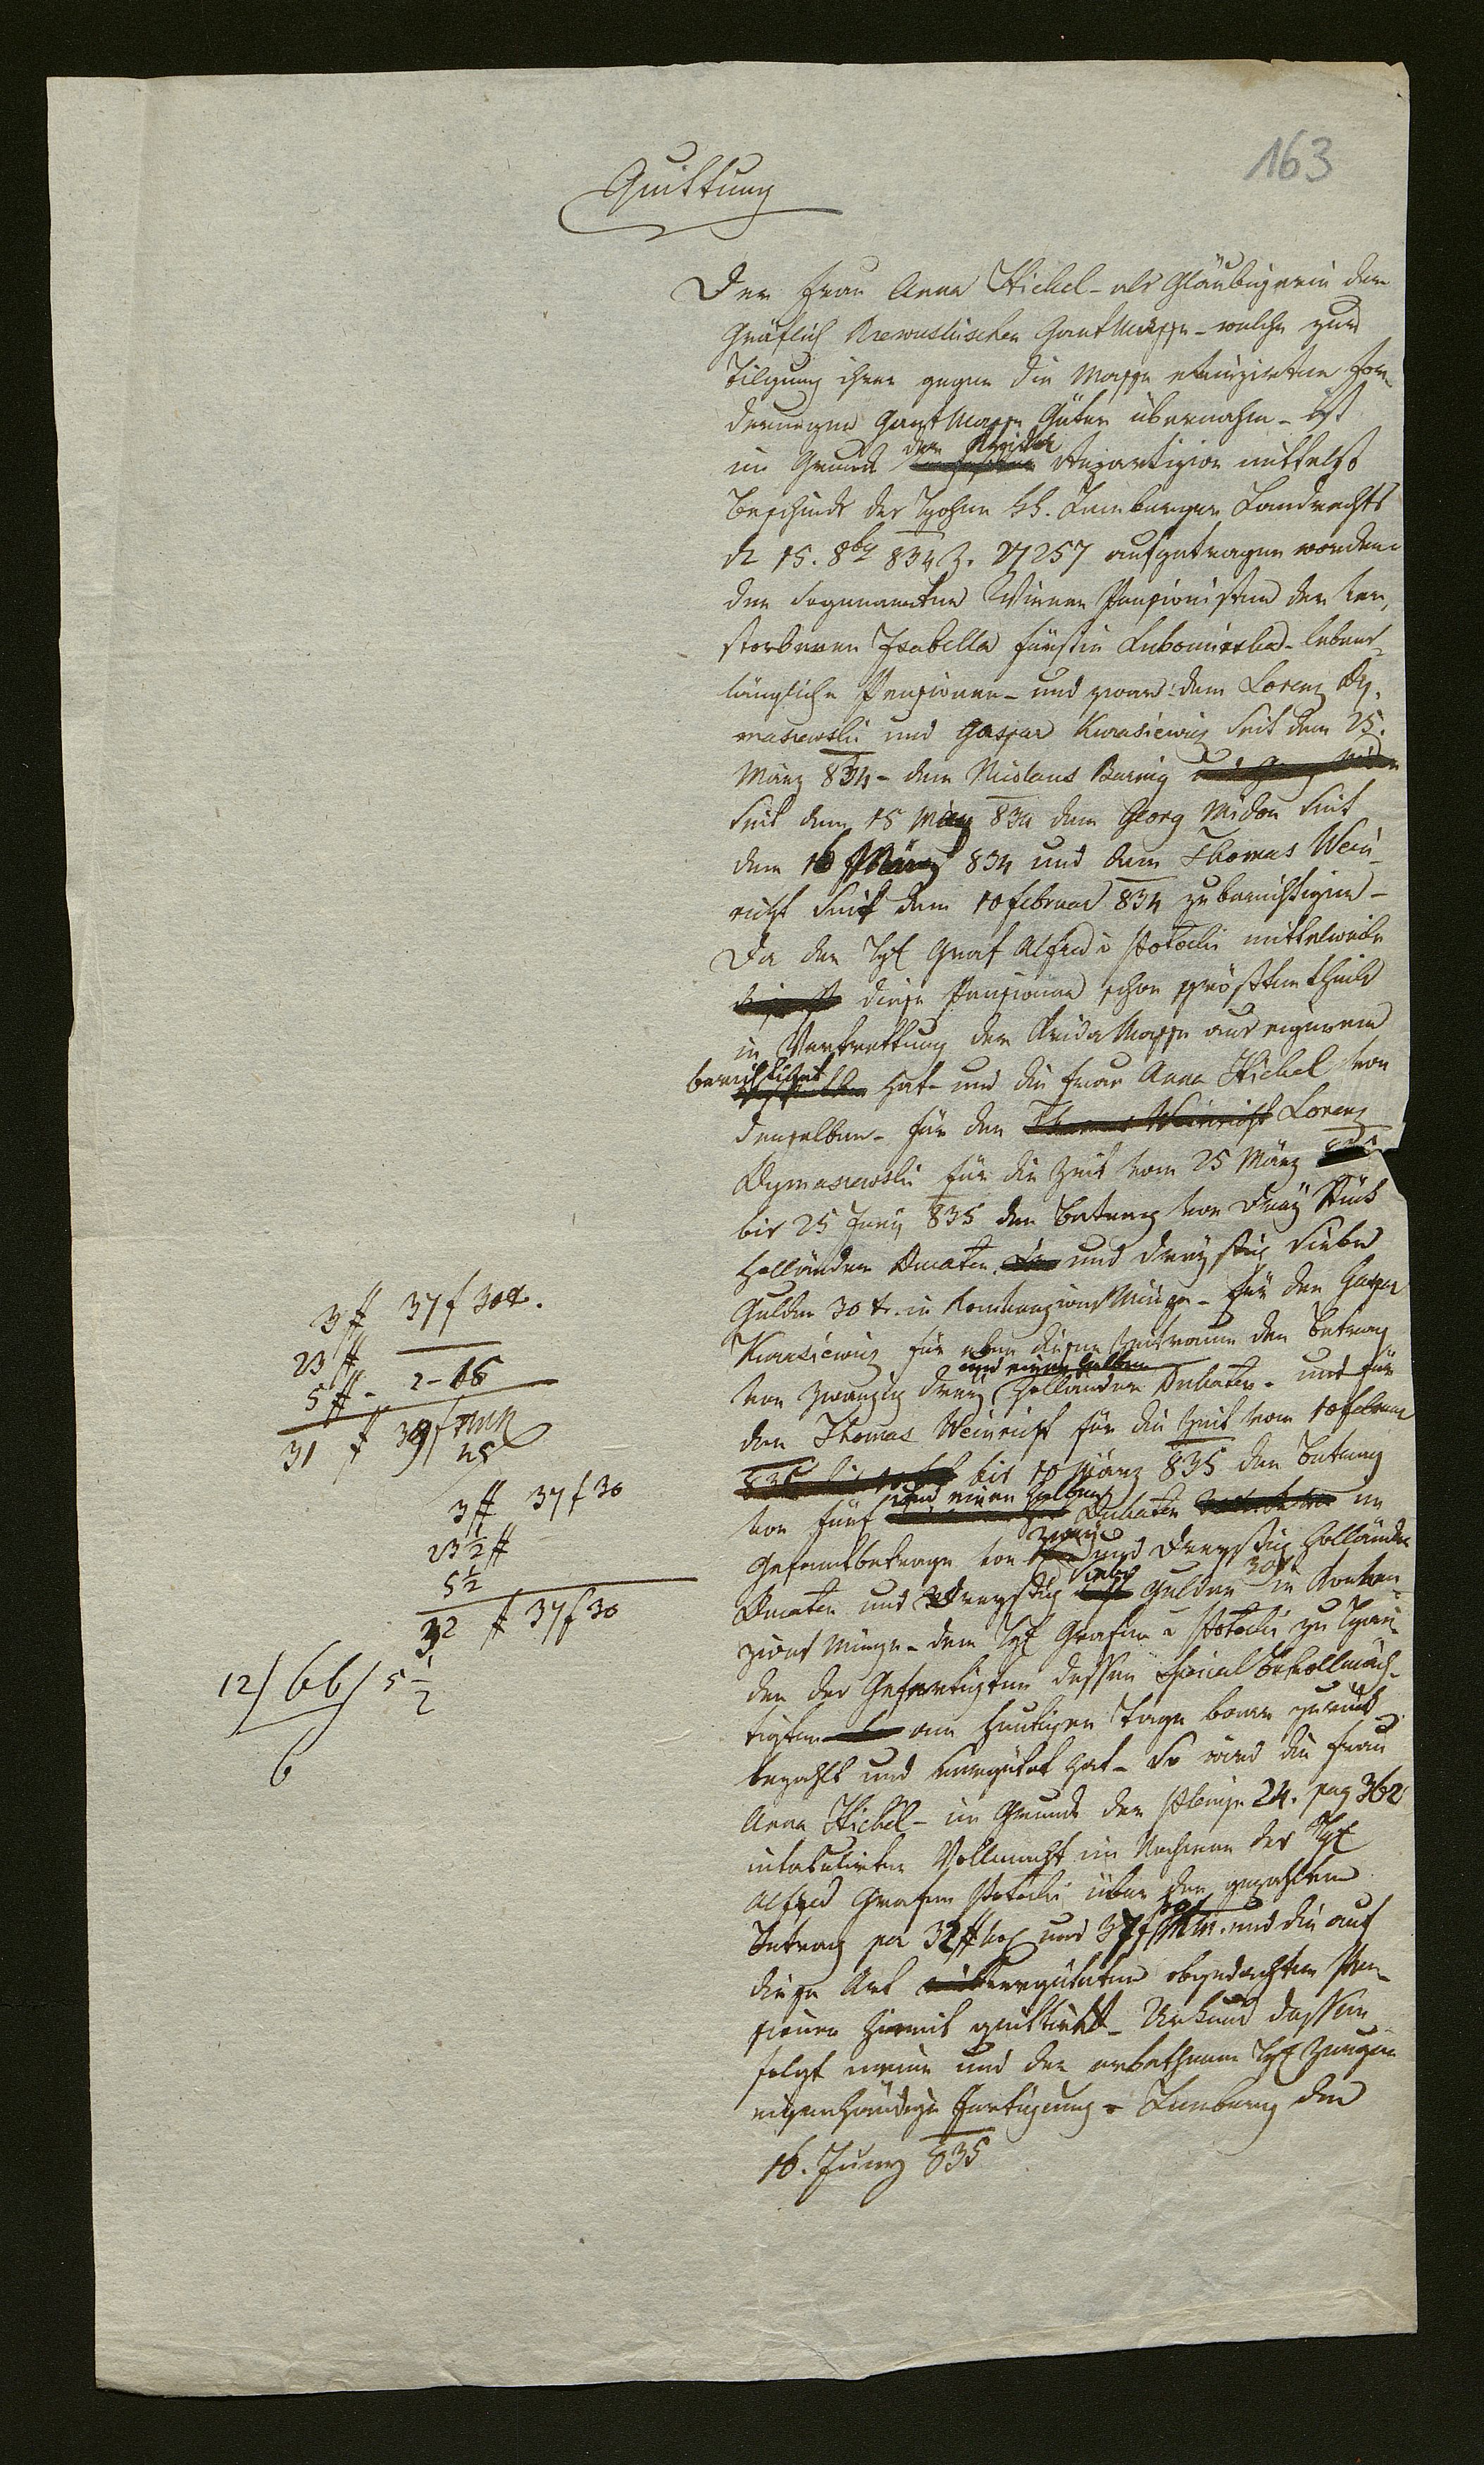 163
Quittung
Der Frau Anna Hickel - als Gläubigerin der
Gräflich Rzewuskischen Gant Masse - welche zur
Tilgung ihrer gegen die Masse liquidirten For-
derungen Gant Masse Güter übernahm - ist
im Grunde der Krida Repartizion mittelst
Bescheids des hohen kk. Lemberger Landrechts
dt 15. 8ber 834 Z. 27257 aufgetragen worden
den sogenannten Wiener Pensionisten der ver-
storbenen Isabella Fürstin Lubomirska - lebens-
längliche Pensionen - und zwar dem Lorenz Dy-
maszewski und Gaspar Kurasiewicz seit dem 25.
März 834 - dem Nicolaus Baring
seit dem 15 May 834 dem Georg Midon seit
dem 16 März 834 und dem Thomas Wein-
richt seit dem 10 Februar 834 zu berichtigen -
Da der Graf Alfred Potocki mittelweile
diese Pensionen schon größtentheils
in Vertrettung der Krida Masse aus eigenem
berichtiget hat - und die Frau Anna Hickel von
denselben - für den Thomas Weinricht Lorenz
Dymaszewski für die Zeit vom 25 März
bis 25 Juny 835 den Betrag von drey Stück
Holländer Ducaten und dreyßig sieben
Gulden 30 x. in Konvenzions Münze - für den Gaspar
Kurasiewicz für eben diesen Zeitraum den Betrag
von zwanzig drey und einen halben Holländer Dukaten - und für
den Thomas Weinricht für die Zeit vom 10 Februar
bis 10 März 835 den Betrag
von fünf und einen halben Dukaten im
Gesammtbetrage von zwey und dreyßig Holländer
Ducaten und dreyßig sieben Gulden 30 x in Konven-
zions Münze - dem Grafen Potocki zu Hän-
den des Gefertigten dessen Special Bevollmäch-
tigten am heutigen Tage baar zurück
bezahlt und vergütet hat - So wird die Frau
Anna Hickel - im Grunde der 24. pag 362
intabulirten Vollmacht im Nahmen des
Alfred Grafen Potocki über den gezahlten
Betrag pr 32 # und 37 f 30 x und die auf
diese Art vergüteten obgedachten Pen-
sionen hiemit quittirt - Urkund dessen
folgt meine und der erbethenen Zeugen
eigenhändige Fertigung - Lemberg den
16. Juny 835
3 # 37 f 30 x.
23 #
5 # - 2 - 15
31 # 39 f
45
3 # 37 f 30
23 1/2 #
5 1/2
32 # 37 f 30
12 / 66 / 5 1/2
6